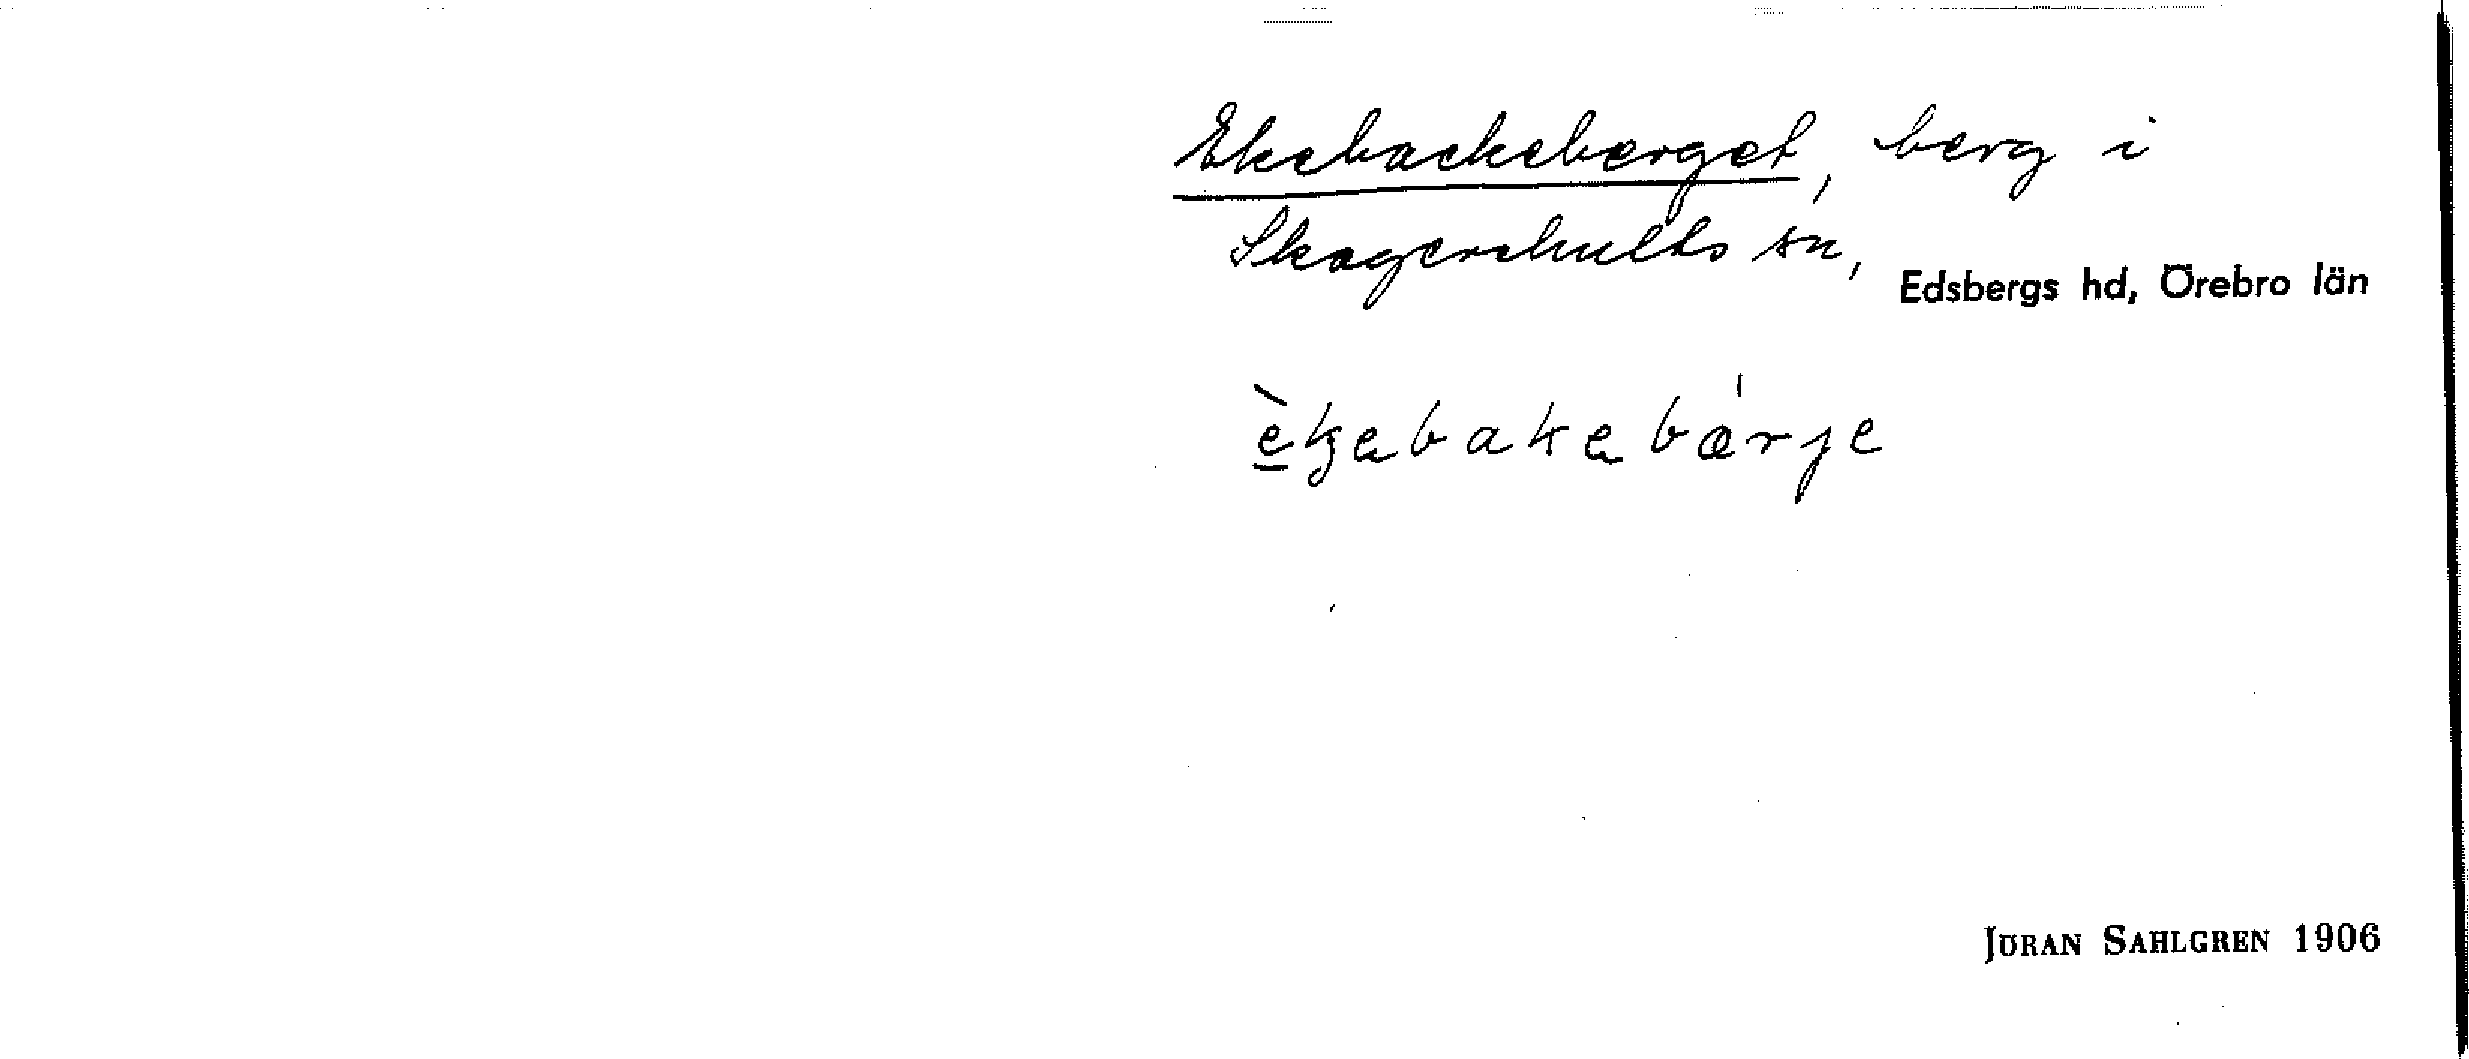 Ekebackeberget, berg i
Skagershults sn,
Edsbergs hd, Örebro län
èkebakebä́rje
JÖRAN SAHLGREN 1906